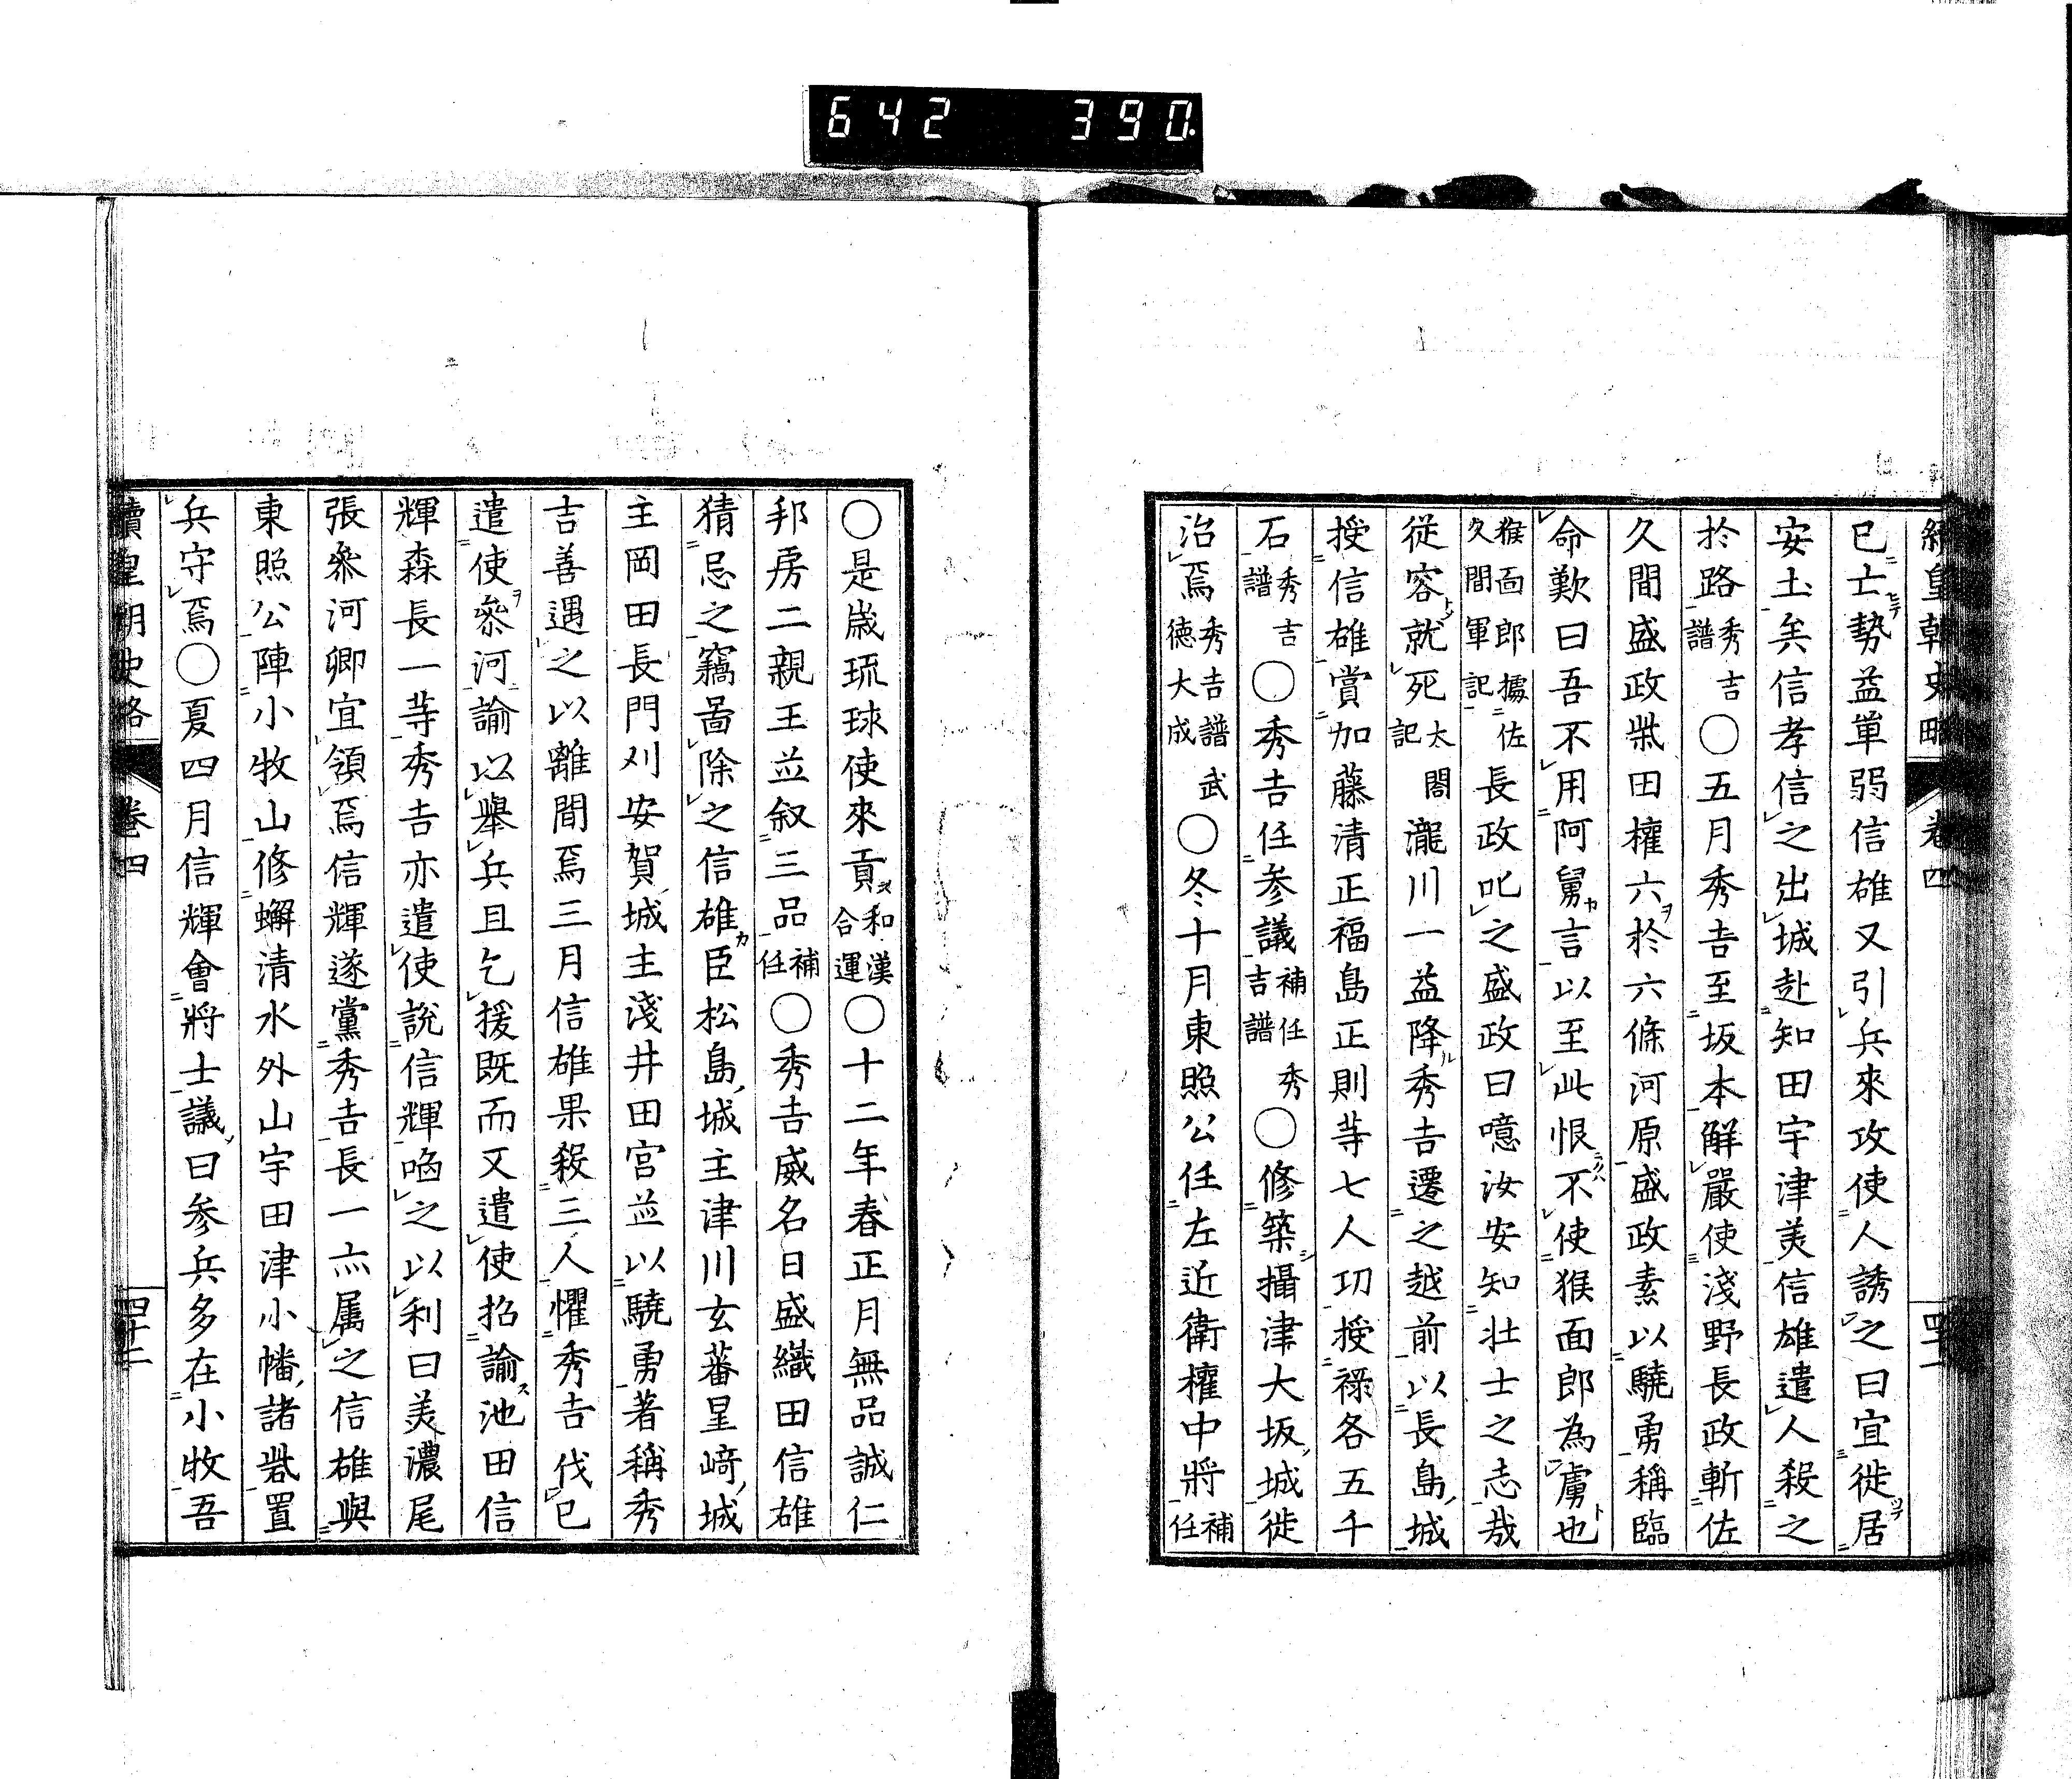 642 390.
續皇朝史略 卷四 四十一
已亡勢益單弱信雄又引兵來攻使人誘之曰宜徙居
安土矣信孝信之出城赴知田宇津美信雄遣人殺之
於路秀吉譜○五月秀吉至坂本解嚴使淺野長政斬佐
久間盛政柴田權六於六條河原盛政素以驍勇稱臨
命歎曰吾不用阿舅言以至此恨不使猴面郎為虜也
猴面郎據佐久間軍記長政叱之盛政曰噫汝安知壯士之志哉
從容就死太閤記瀧川一益降秀吉遷之越前以長島城
授信雄賞加藤清正福島正則等七人功授祿各五千
石秀吉譜○秀吉任参議補任秀吉譜○修築攝津大坂城徙
治焉秀吉譜武德大成○冬十月東照公任左近衛權中將補任
○是歲琉球使來貢和漢合運○十二年春正月無品誠仁
邦房二親王並叙三品補任○秀吉威名日盛織田信雄
猜忌之竊啚除之信雄臣松島城主津川玄蕃星﨑城
主岡田長門刈安賀城主淺井田宮並以驍勇著稱秀
吉善遇之以離間焉三月信雄果殺三人懼秀吉伐己
遣使參河諭以舉兵且乞援既而又遣使招諭池田信
輝森長一等秀吉亦遣使說信輝啗之以利曰美濃尾
張參河卿宜領焉信輝遂黨秀吉長一亦屬之信雄與
東照公陣小牧山修蠏清水外山宇田津小幡諸砦置
兵守焉○夏四月信輝會將士議曰参兵多在小牧吾
續皇朝史略 卷四 四十二